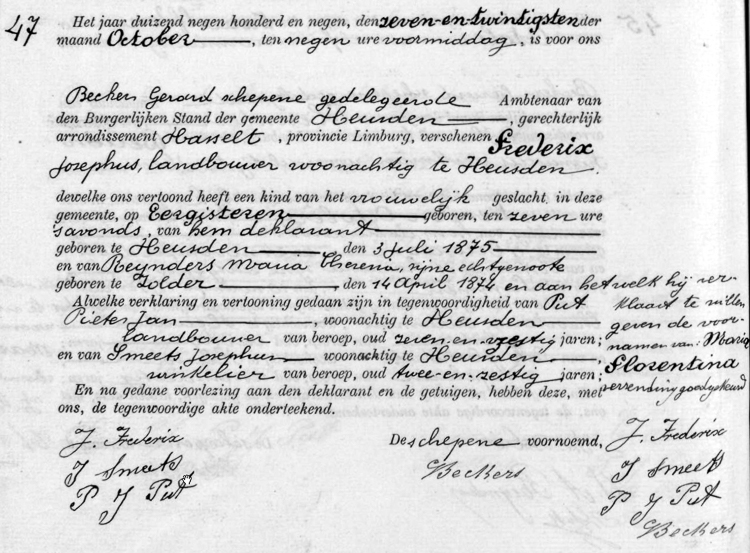 47
Het jaar duizend negen honderd en negen, den zeven-en-twintigsten der
maand October, ten negen ure voormiddag, is voor ons
Beckers Gerard schepene gedelegeerde Ambtenaar van
den Burgerlijken Stand der gemeente Heusden, gerechterlijk
arrondissement Hasselt, provincie Limburg, verschenen Frederix
Josephus, landbouwer woonachtig te Heusden.
dewelke ons vertoond heeft een kind van het vrouwelijk geslacht, in deze
gemeente, op Eergisteren geboren, ten zeven ure
's avonds, van hem deklarant
geboren te Heusden, den 3 Juli 1875
en van Reynders Maria Theresia, zijne echtgenoote
geboren te Zolder, den 14 April 1874 en aan hetwelk hij ver-
klaart te willen
geven de voor-
namen van: Maria
Florentina
verzending goedgekeurd
Alwelke verklaring en vertooning gedaan zijn in tegenwoordigheid van Put
Pieter Jan, woonachtig te Heusden
landbouwer van beroep, oud zeven-en-vestig jaren;
en van Smeets Josephus woonachtig te Heusden,
winkelier van beroep, oud twee-en-zestig jaren;
En na gedane voorlezing aan den deklarant en de getuigen, hebben deze, met
ons, de tegenwoordige akte onderteekend.
J. Frederix
J Smeets
P J Put
De schepene voornoemd,
Beckers
J. Frederix
J Smeets
P J Put
Beckers